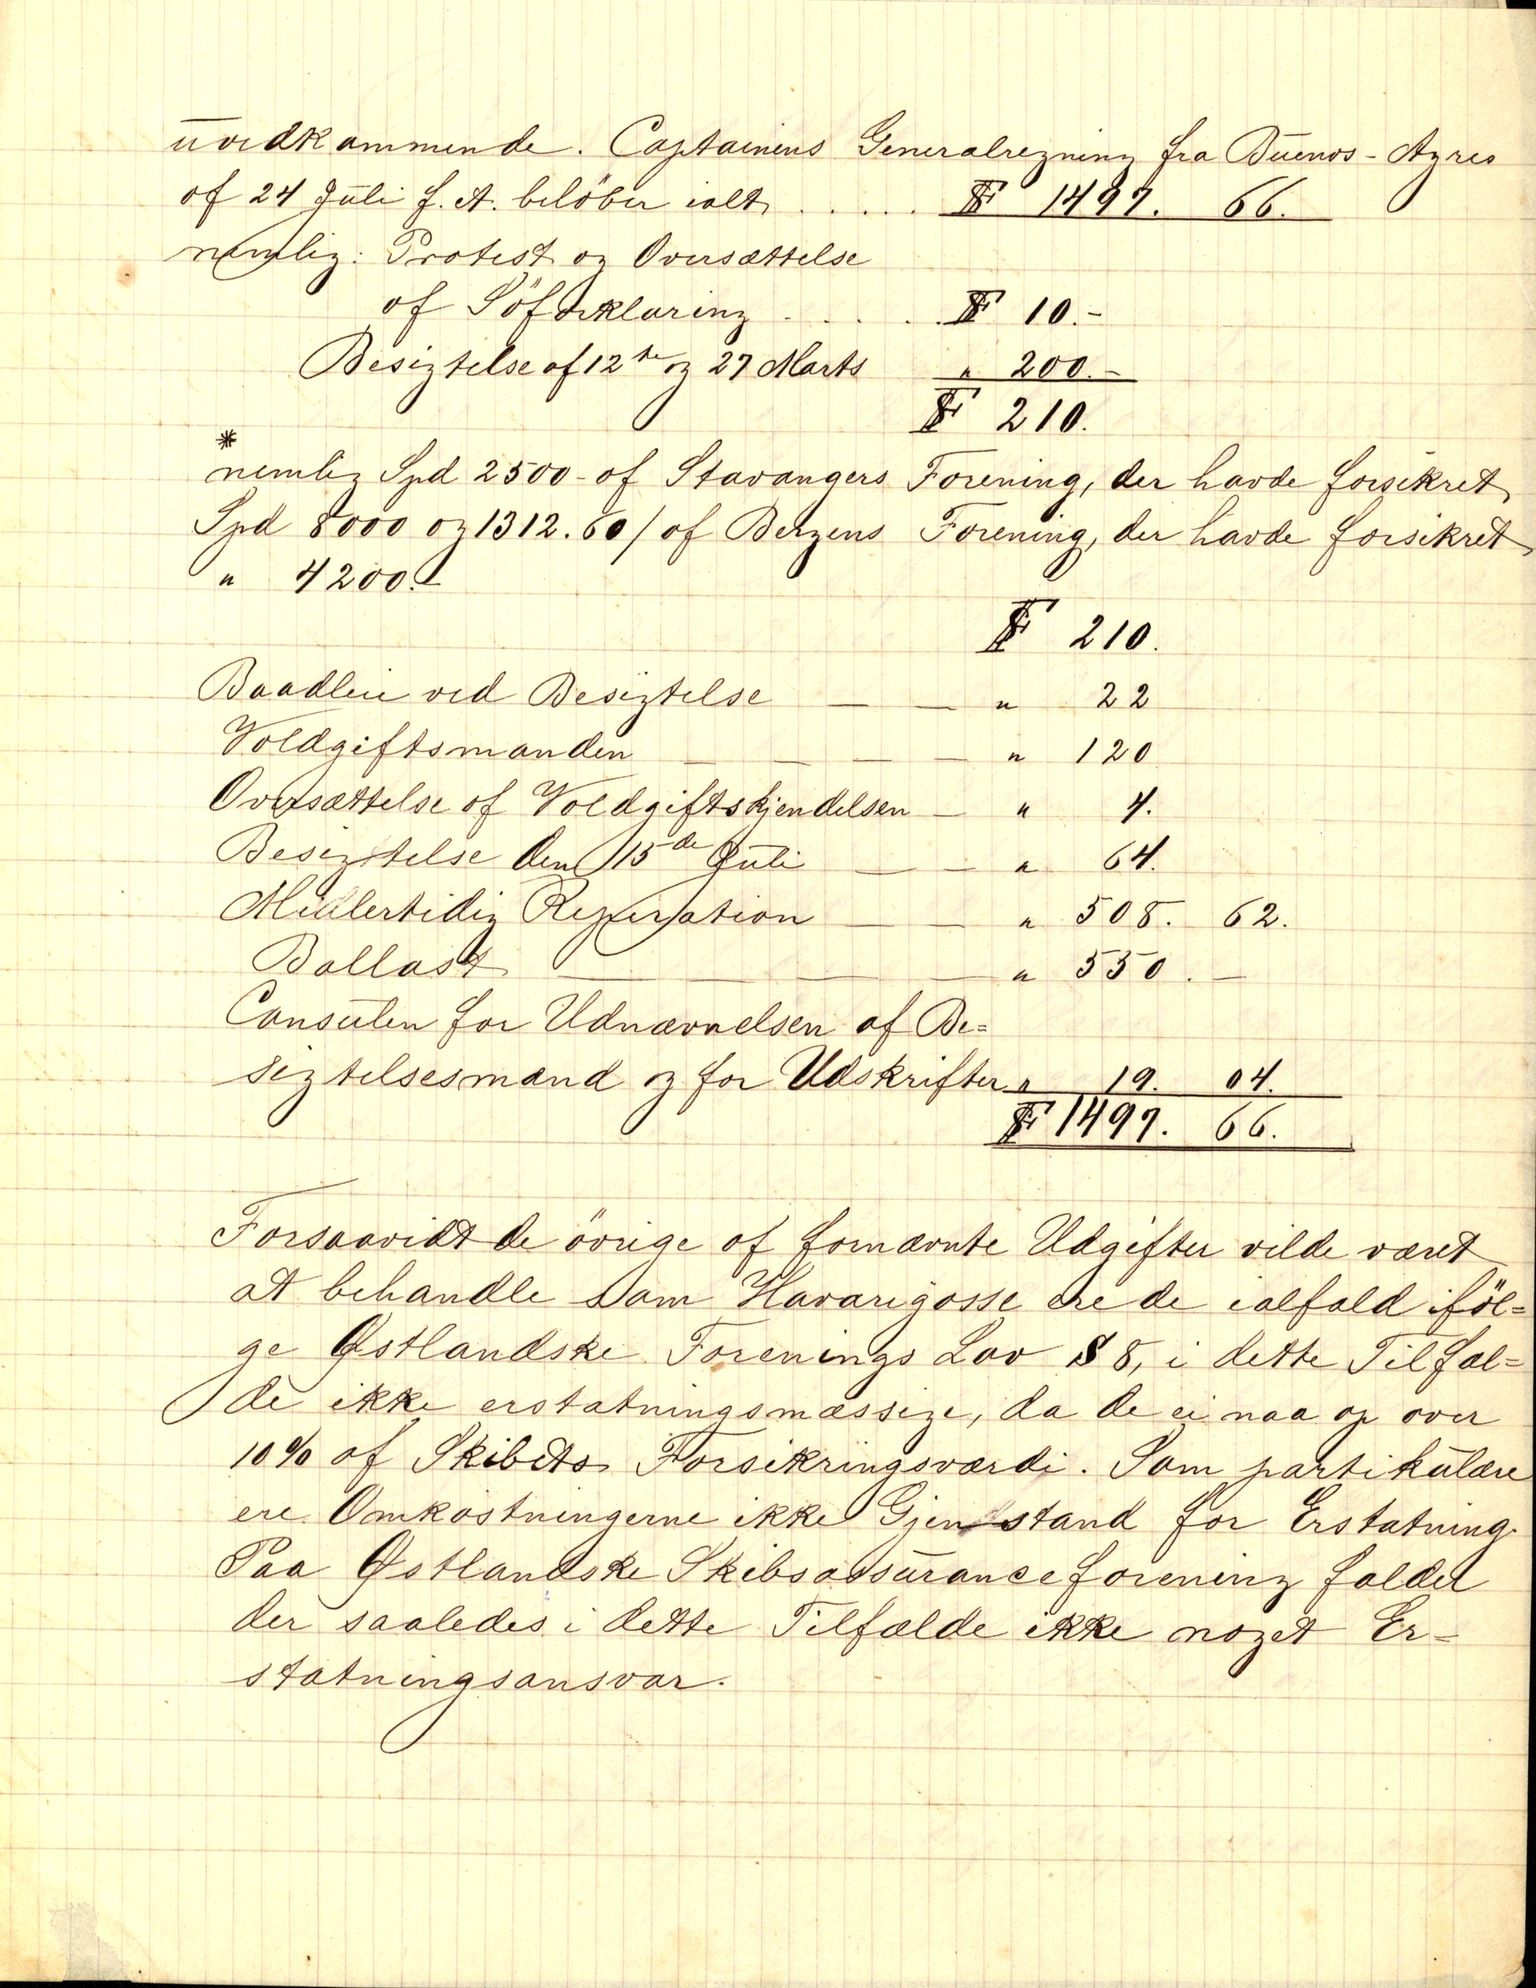 uvedkommende. Captainens Generalregning fra Buenos-Ayres
af 24 Juli f. A. beløber ialt ..... PF 1497. 66.
nemlig: Protest og Oversættelse
af Söforklaring .... PF 10.-
Besigtelse af 12te og 27 Marts " 200.-
PF 210.
*
nemlig Spd 2500- af Stavangers Forening, der havde forsikret
Spd 8000 og 1312.60/ af Bergens Forening, der havde forsikret
" 4200.-
PF 210.
Baadleie ved Besigtelse — — " 22
Voldgiftsmanden — — — — " 120
Oversættelse af Voldgiftskjendelsen — " 4.
Besigtelse den 15de Juli — — " 64.
Midlertidig Reparation — — " 508. 62.
Ballast — — — " 550. —
Consulen for Udnævnelsen af Be=
sigtelsesmænd og for Udskrifter " 19. 04.
PF 1497. 66.
Forsaavidt de övrige af fornævnte Udgifter vilde været
at behandle som Havarigrosse ere de ialfald iföl=
ge Østlandske Forenings Lov § 8, i dette Tilfæl=
de ikke erstatningsmæssige, da de ei naa op over
10% af Skibets Forsikringsværdi. Som partikulære
ere Omkostningerne ikke Gjenstand for Erstatning.
Paa Østlandske Skibsassuranceforening falder
der saaledes i dette Tilfælde ikke noget Er=
statningsansvar.